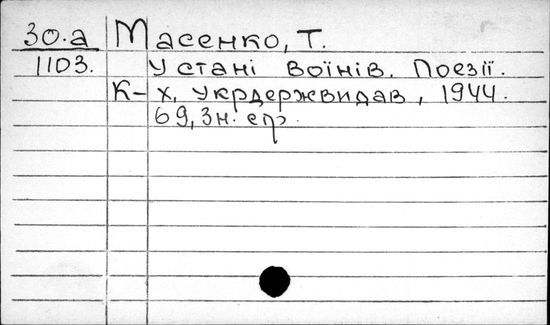 30.а Масенко, Т.
1103. У стані воїнів. Поезії.
К-х, Укрдержвидав, 1944.
69, 3н. стр.